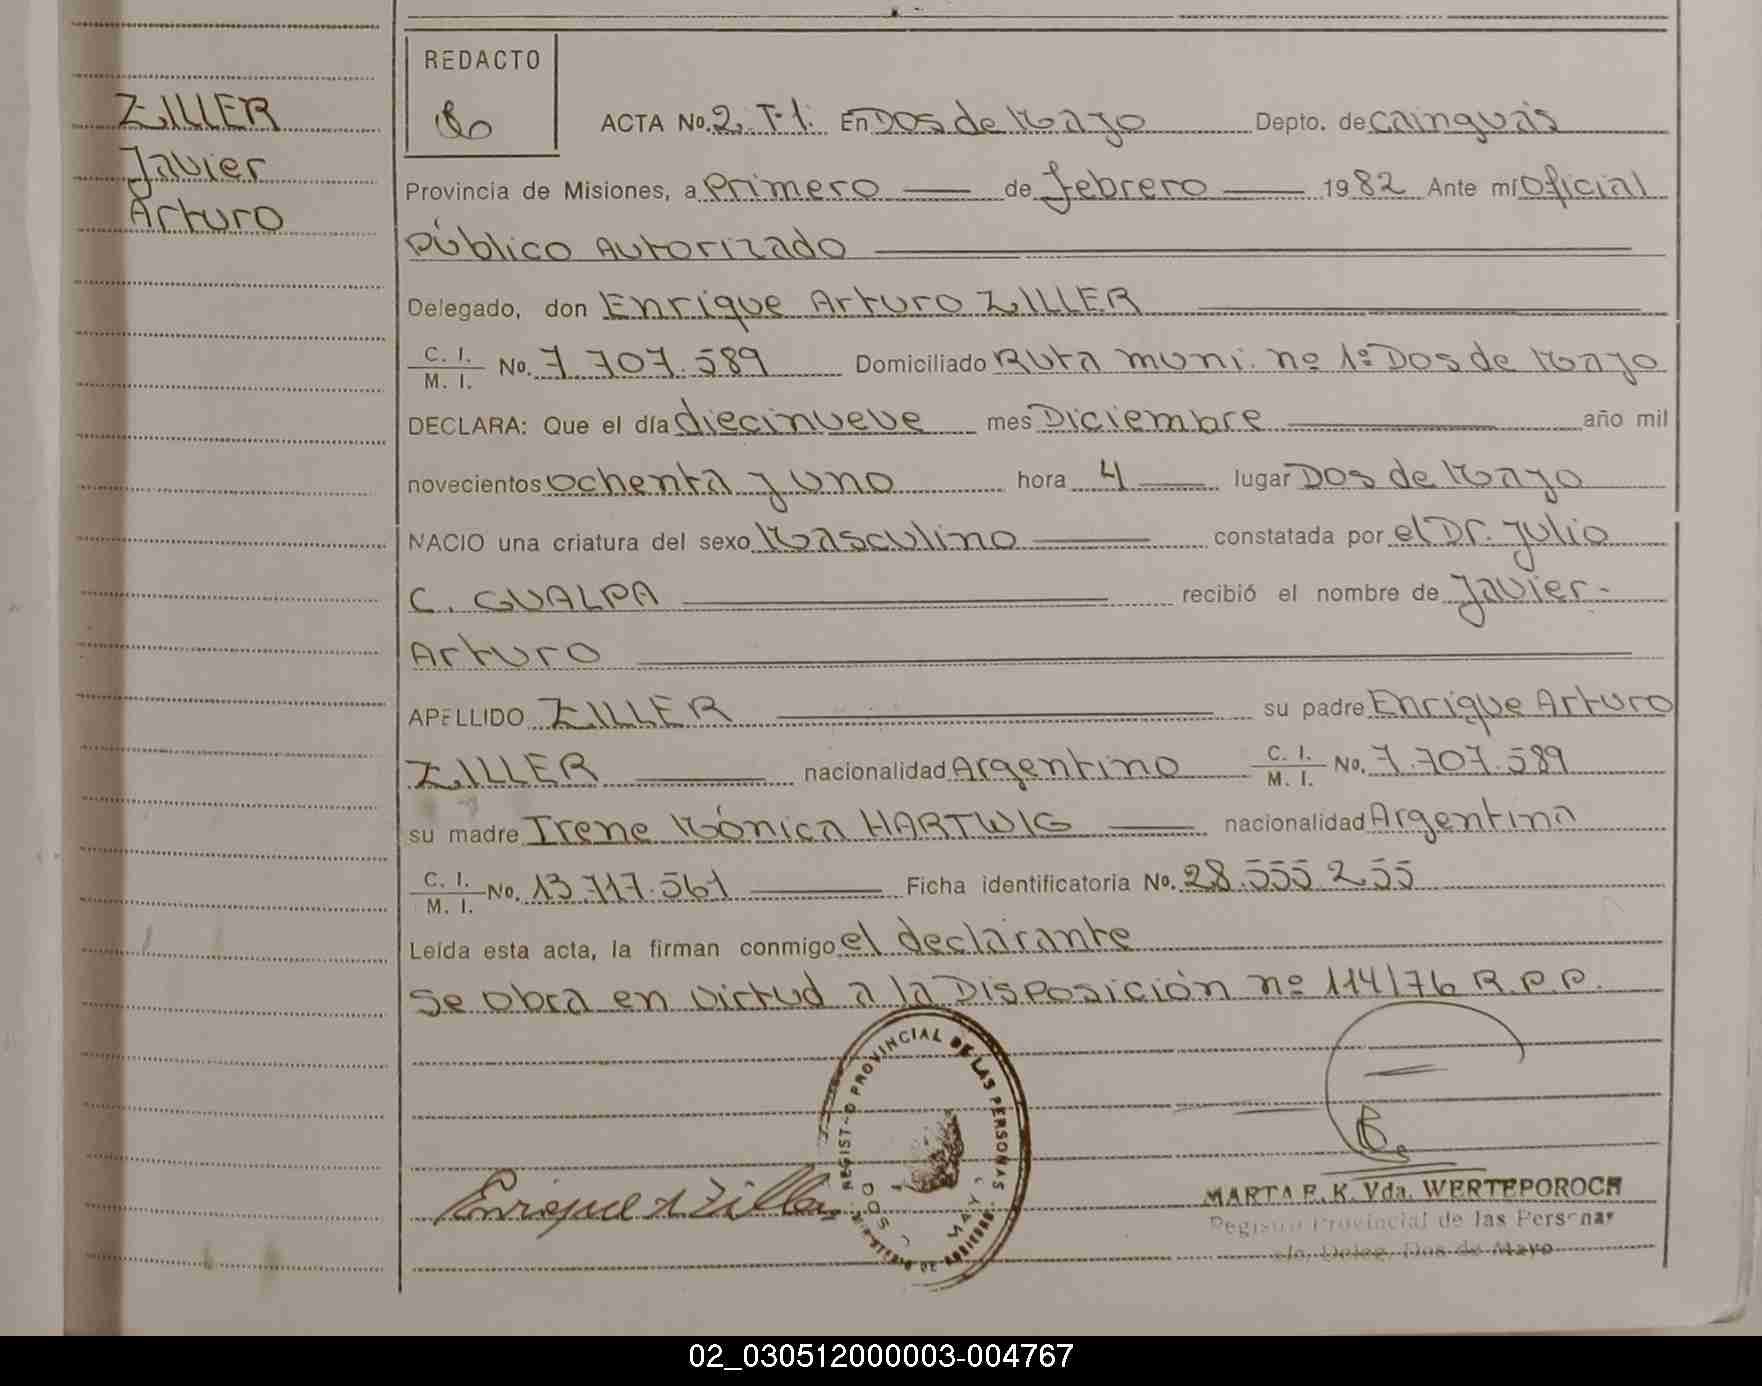 ZILLER
Javier
Arturo
REDACTO
ACTA No. 2. T-1. En Dos de Mayo Depto. de Cainguás
Provincia de Misiones, a Primero de febrero 1982 Ante mí Oficial
Público Autorizado
Delegado, don Enrique Arturo ZILLER
C. I. / M. I. No. 7.707.589 Domiciliado Ruta muni. nº 1º Dos de Mayo
DECLARA: Que el día diecinueve mes Diciembre año mil
novecientos ochenta y uno hora 4 lugar Dos de Mayo
NACIO una criatura del sexo Masculino constatada por el Dr. Julio
C. GUALPA recibió el nombre de Javier-
Arturo
APELLIDO ZILLER su padre Enrique Arturo
ZILLER nacionalidad Argentino C. I. / M. I. No. 7.707.589
su madre Irene Mónica HARTWIG nacionalidad Argentina
C. I. / M. I. No. 13.717.561 Ficha identificatoria No. 28.555.255
Leída esta acta, la firman conmigo el declarante
Se obra en virtud a la Disposición nº 114/76 R.P.P.
REGISTRO PROVINCIAL DE LAS PERSONAS
Enrique A Ziller
MARTA E. K. Vda. WERTEPOROCH
Registro Provincial de las Personas
Deleg. Dos de Mayo
02_030512000003-004767